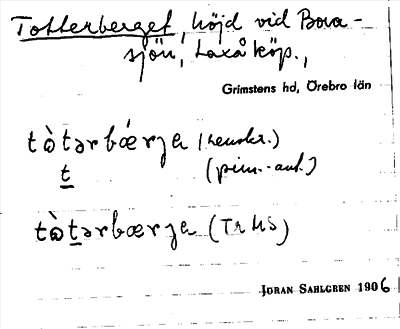 Totterberget, höjd vid Bora-
sjön, Laxå köp.,
Grimstens hd, Örebro län
tὼtərbǽrja (renskr.)
t̲ (prim.-aut.)
tὼt̲ərbærja (TrHS)
JÖRAN SAHLGREN 1906